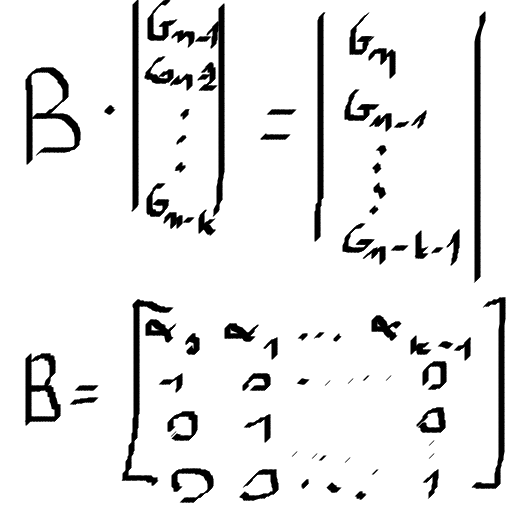 B · | G_{n-1} | = | G_n |
| G_{n-2} | | G_{n-1} |
| ⋮ | | ⋮ |
| G_{n-k} | | G_{n-k-1} |
B = [ α_0 α_1 ... α_{k-1} ]
[ 1 0 ... 0 ]
[ 0 1 0 ]
[ 0 0 ... 1 ]